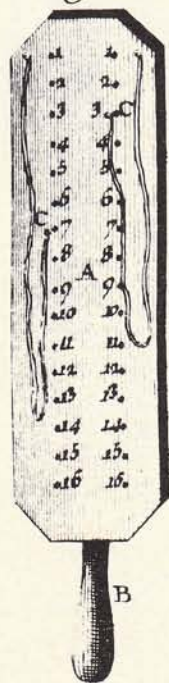 1 1
2 2
3 3 C
4 4
5 5
6 6
C
7 7
8 8
A
9 9
10 10
11 11
12 12
13 13
14 14
15 15
16 16
B